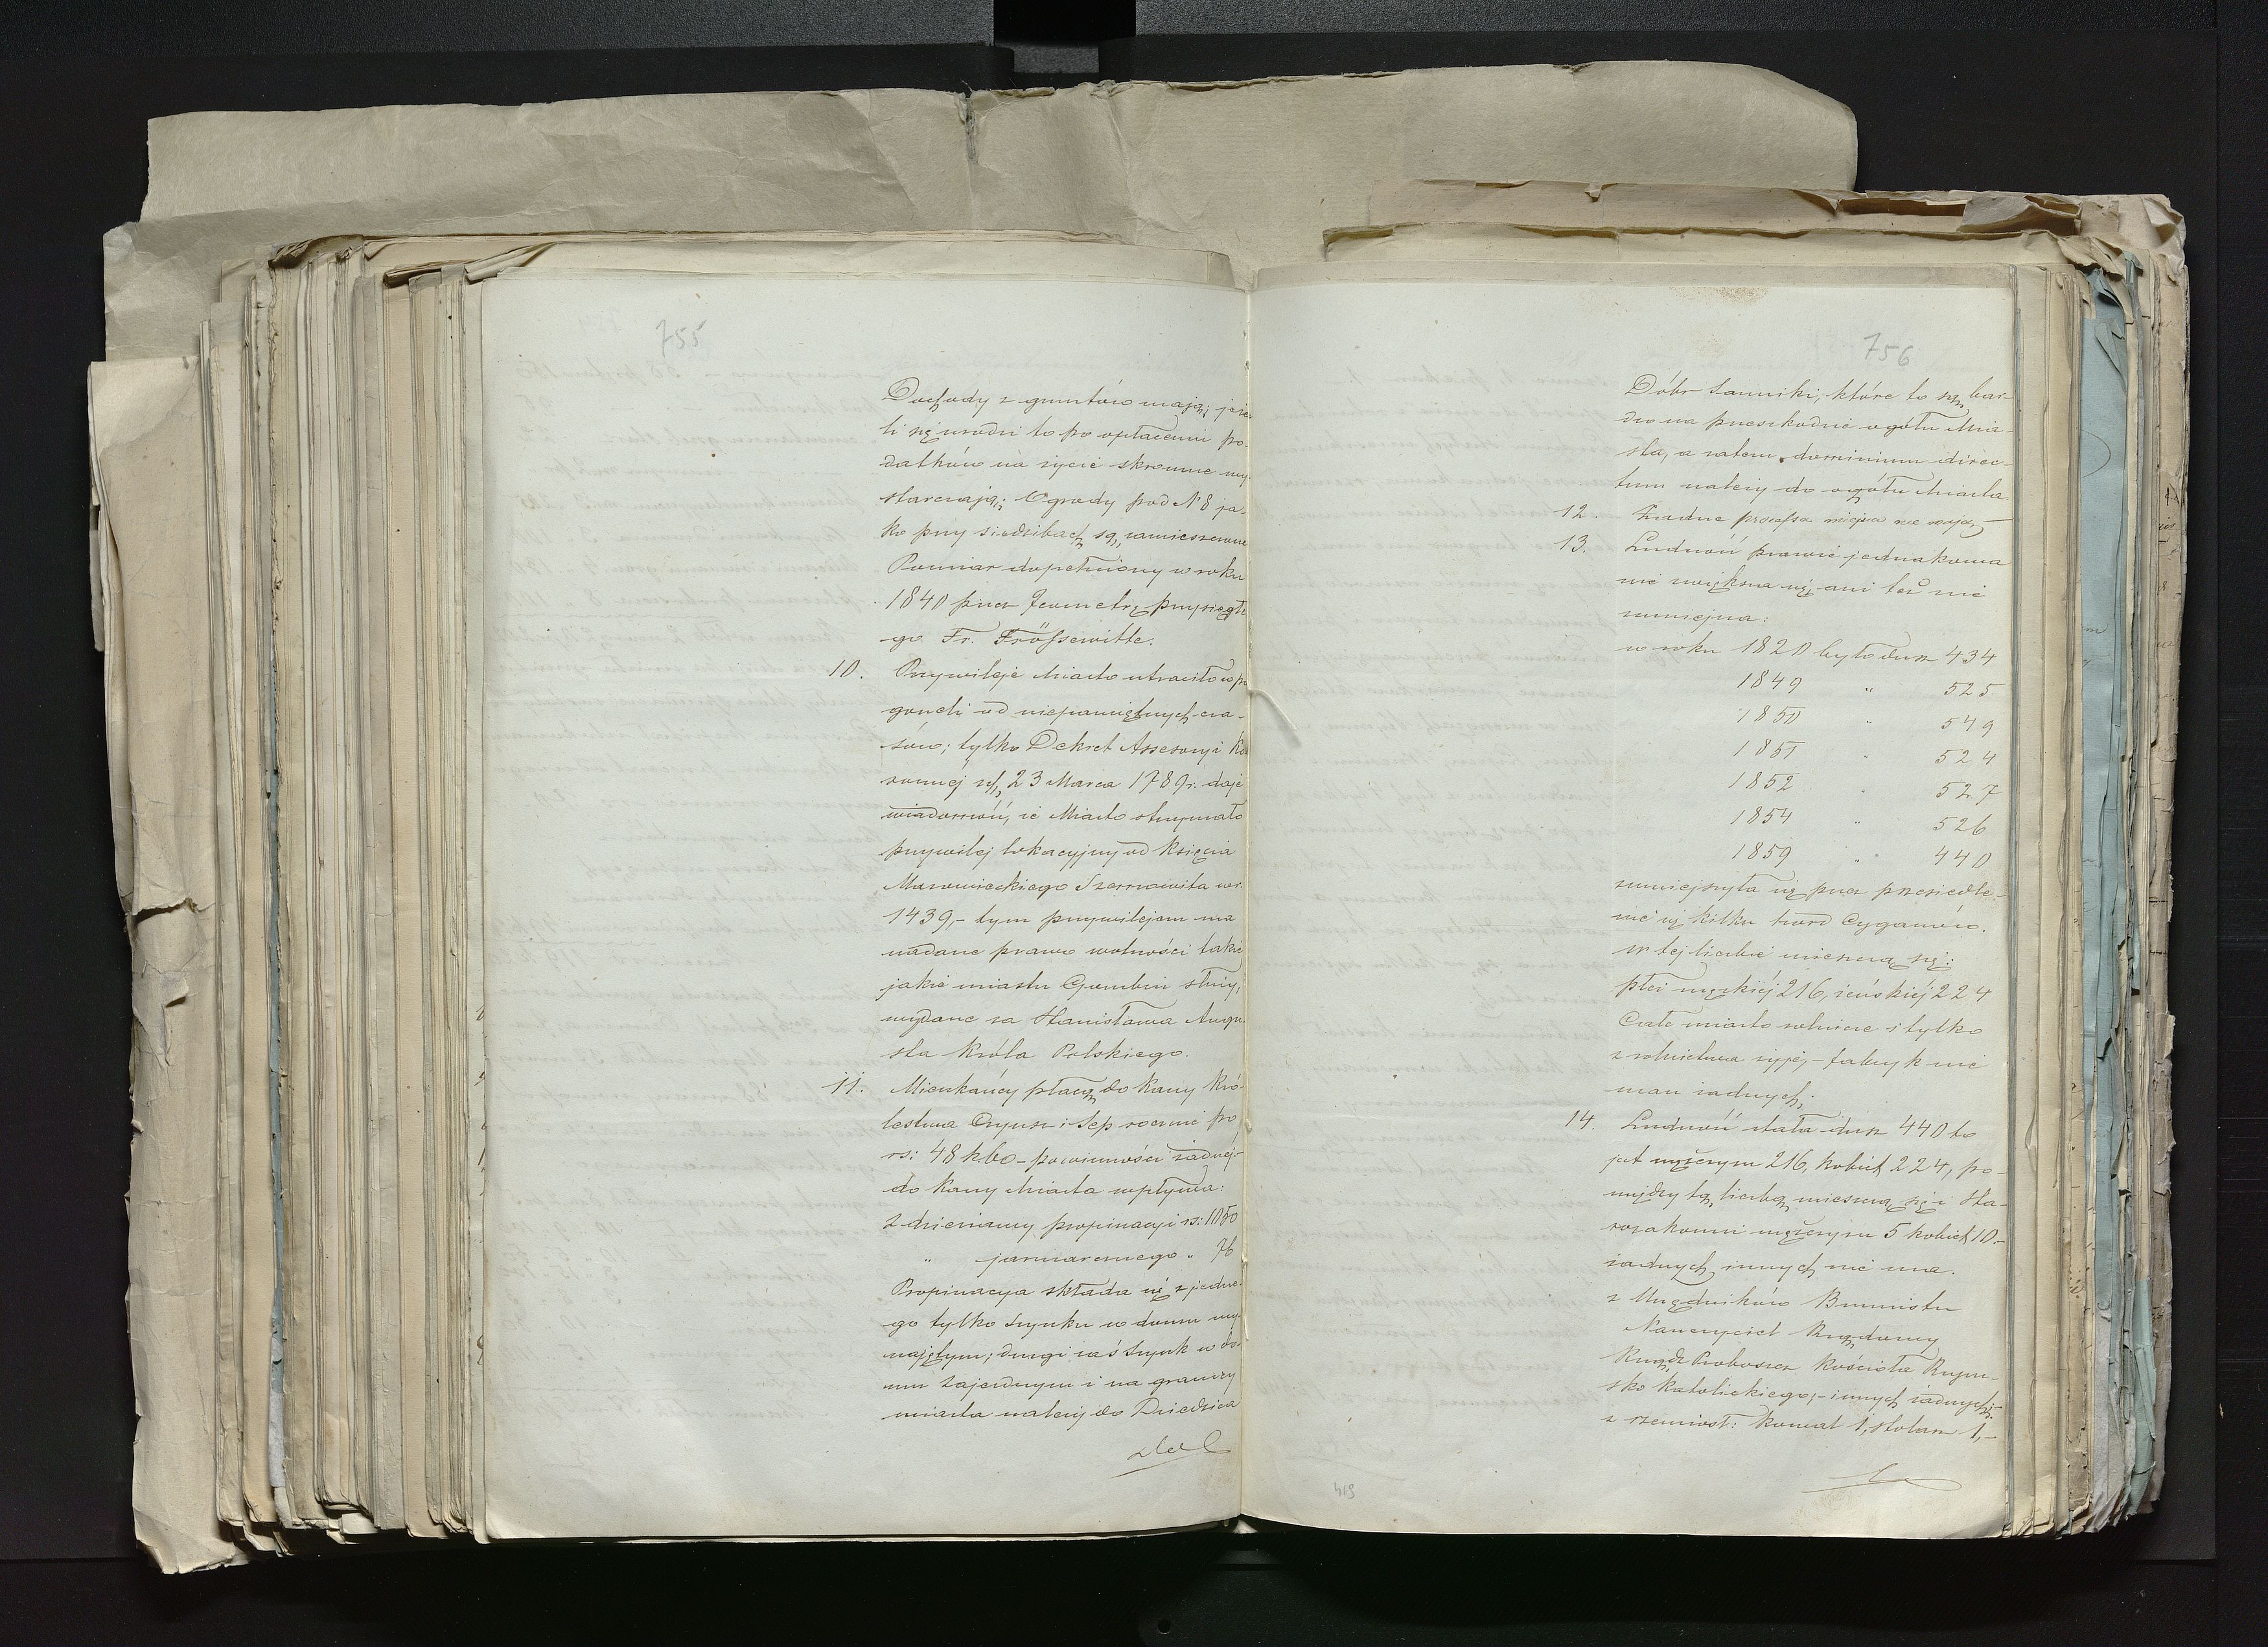 755
Dochody z gruntów mają; jeże-
li się urodzi to po opłaceniu po-
datków na życie skromne wy-
starczają; Ogrody pod N 8 ja-
ko przy siedzibach są zamieszczone
Pomiar dopełniony w roku
1840 przez Jeometrę przysięgłe
go Fr.
10. Przywileje Miasto utraciło w po
gorzeli od niepamiętnych cza-
sów; tylko Dekret Assesoryi Ko
ronnej z d. 23 Marca 1789 r. daje
wiadomość, że Miasto otrzymało
przywilej lokacyjny od Księcia
Mazowieckiego Szemowita w r.
1439,- tym przywilejem ma
nadane prawo wolności takie
jakie miastu Gombin służy,
wydane za Stanisława Augu
sta Króla Polskiego.
11. Mieszkańcy płacą do Kassy Kró-
lestwa Czynsz i Sep rocznie po
rs: 48 k 60 - powinności żadnej -
do Kassy Miasta wpływa:
z dzierżawy propinacyi rs: 1050
" jarmarcznego " 76
Propinacya składa się z jedne-
go tylko Szynku w domu wy-
najętym; drugi zaś Szynk w do-
mu Zajezdnym i na granicy
miasta należy do Dziedzica
756
Dóbr Sanniki, które to są bar-
dzo na przeszkodzie ogółu Mia-
sta, a zatem dominium direc-
tum należy do ogółu Miasta.
12. Żadne processa miejsca nie mają —
13. Ludność prawie jednakowa
nie zwiększa się ani też nie
zmniejsza:
w roku 1820 było dusz 434
1849 " 525
1850 " 549
1851 " 524
1852 " 527
1854 " 526
1859 " 440
zmniejszyła się przez przesiedle-
nie się kilku hord Cyganów.
w tej liczbie mieszczą się:
płci męzkiéj 216, żeńskiéj 224
Całe miasto rolnicze i tylko
z rolnictwa żyje, - fabryk nie
masz żadnych.
14. Ludność stała dusz 440 to
jest mężczyzn 216, kobiet 224, po-
między tą liczbą mieszczą się i Sta-
rozakonni mężczyzn 5 kobiet 10.-
żadnych innych nie ma.
z Urzędników Burmistrz
Nauczyciel Rządowy
Ksiądz Proboszcz Kościoła Rzym-
sko Katolickiego; - innych żadnych;
z rzemiosł: Kowal 1, stolarz 1,-
419